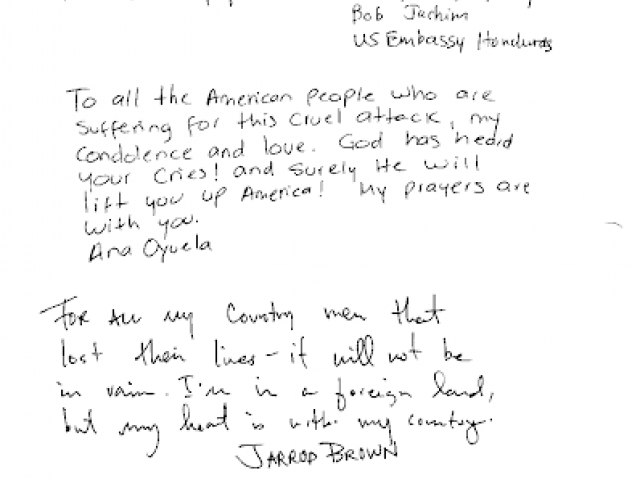 Bob Jachim
US Embassy Honduras
To all the American people who are
suffering for this cruel attack, my
Condolence and love. God has heard
your Cries! and surely He will
lift you up America! My prayers are
with you.
Ana Oyuela
FOR ALL my Country men that
lost their lives - it will not be
in vain. I'm in a foreign land,
but my heart is with my country.
JARROD BROWN